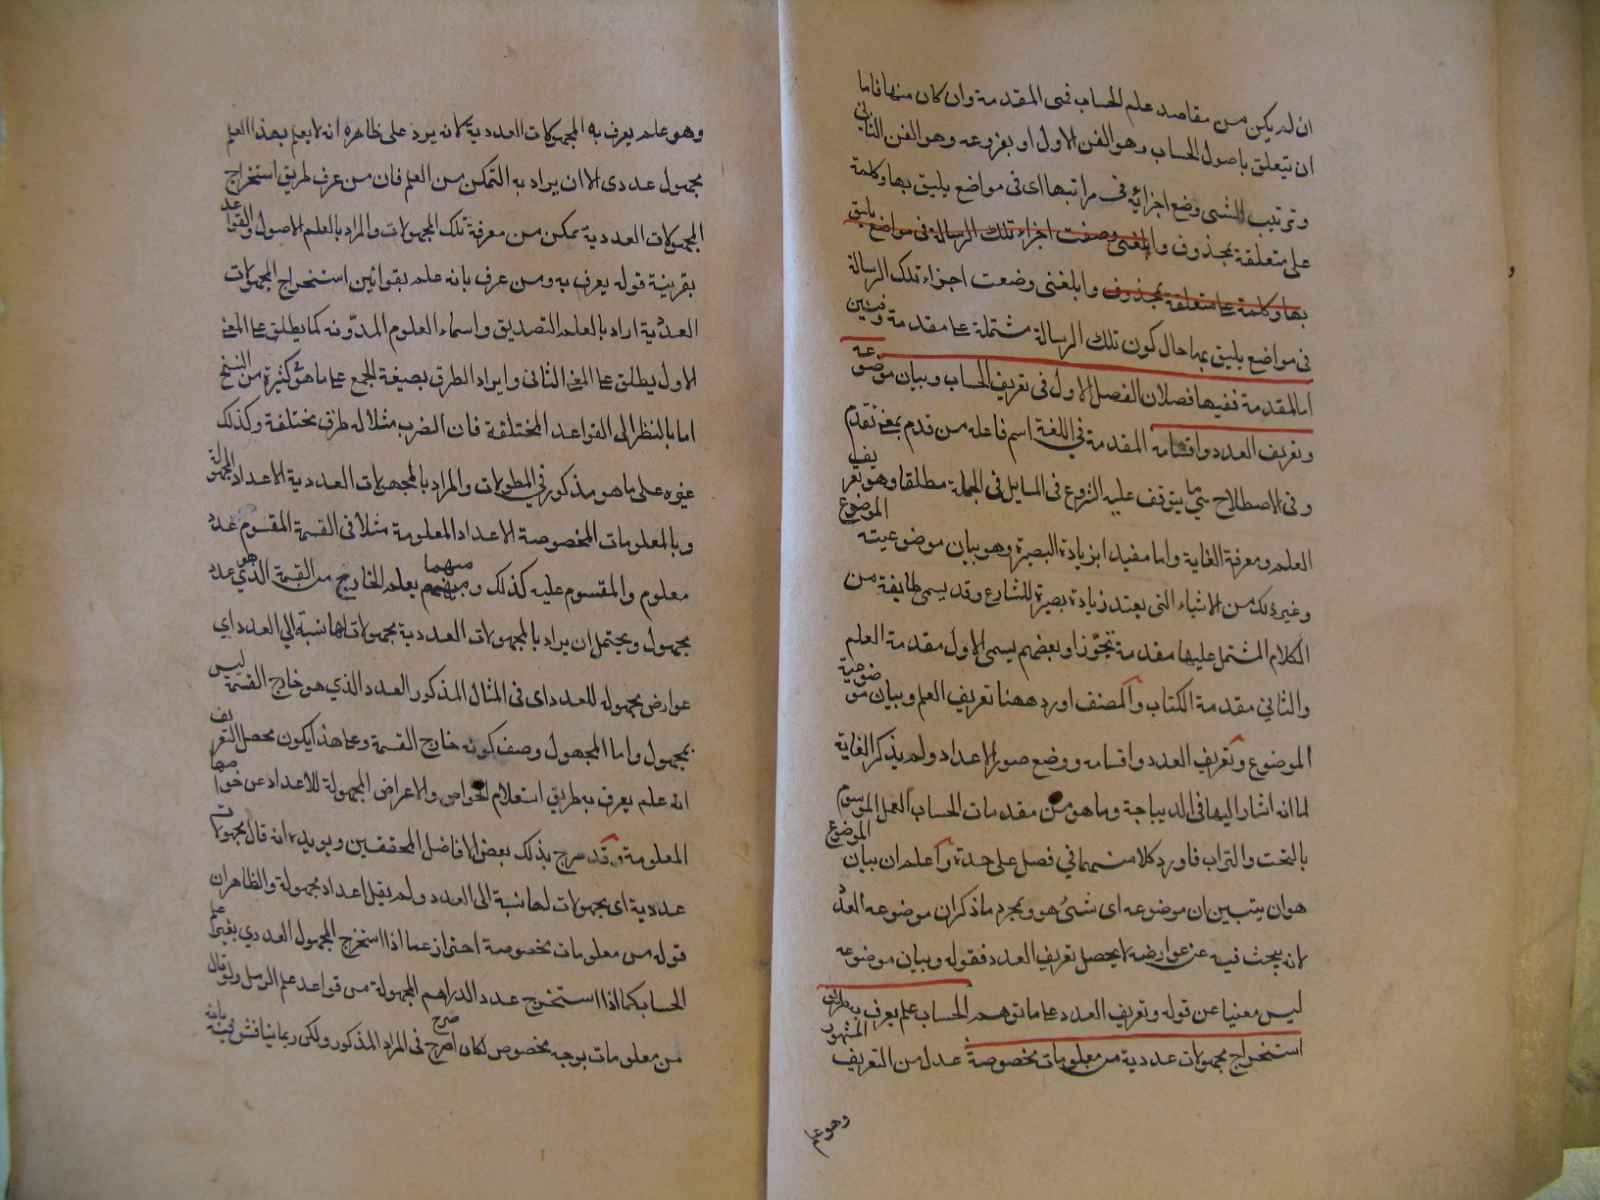 ان لم يكن من مقاصد علم الحساب فهى المقدمة وان كان منها فاما
ان يتعلق باصول الحساب وهو الفن الاول او بفروعه وهو الفن الثانى
وترتيب الشى وضع اجزائه فى مراتبها اى فى مواضع يليق بها وكلمة
على متعلقة بمحذوف والمعنى وصفت اجزاء تلك الرسالة فى مواضع يليق
بها وكلمة على متعلقة بمحذوف والمعنى وضعت اجزاء تلك الرسالة
فى مواضع يليق بها حال كون تلك الرسالة مشتملة على مقدمة وفنين
اما المقدمة ففيها فصلان الفصل الاول فى تعريف الحساب وبيان موضوعه
وتعريف العدد واقسامه المقدمة فى اللغة اسم فاعله من قدم بمعنى تقدم
وفى الاصطلاح شى ما يتوقف عليه الشروع فى المسايل فى الجملة مطلقا وهو تعريف
العلم ومعرفة الغاية واما مفيد ابزيادة البصيرة وهو بيان موضوعيته الموضوع
وغير ذلك من الاشياء التى يعتد زيادة بصيرة للشارع وقد يسمى طايفة من
الكلام المشتمل عليها مقدمة تجوّزا وبعضهم يسمى الاول مقدمة العلم
والثانى مقدمة الكتاب والمصنف اورد ههنا تعريف العلم وبيان موضوعية
الموضوع وتعريف العدد واقسامه ووضع صور الاعداد ولم يذكر الغاية
لما انه اشار اليها فى الديباجة وما هو من مقدمات الحساب العمل الموسوم
بالتخت والتراب فاورد كلا منهما في فصل على حدة واعلم ان بيان الموضوع
هو ان يتبين ان موضوعه اى شئ هو وبمجرد ما ذكر ان موضوعه العدد
لانه يبحث فيه عن عوارضه لا يحصل تعريف العدد فقوله وبيان موضوعه
ليس مغنيا عن قوله وتعريف العدد على ما توهم الحساب علم يعرف به طرائق
استخراج مجهولات عددية من معلومات مخصوصة عدل من التعريف المشهور
وهو علم
وهو علم يعرف به المجهولات العددية لانه يرد على ظاهره انه لا يعلم بهذا العلم
مجهول عددى الا ان يراد به التمكن من العلم فان من عرف طريق استخراج
المجهولات العددية يمكن من معرفة تلك المجهولات والمراد بالعلم الاصول والقواعد
بقرينة قوله يعرف به ومن عرف بانه علم بقوانين استخراج المجهولات
العددية اراد بالعلم التصديق واسماء العلوم المدوّنه كما يطلق على المعنى
الاول يطلق على المعنى الثانى وايراد الطرق بصيغة الجمع على ما هو فى كثيرة من النسخ
اما بالنظر الى القواعد المختلقة فان الضرب مثلا له طرق مختلفة وكذلك
غيره على ما هو مذكور في المطولات والمراد بالمجهولات العددية الاعداد المجهولة
وبالمعلومات المخصوصة الاعداد المعلومة مثلا فى القسمة المقسوم عدد
معلوم والمقسوم عليه كذلك ومنهما يعلم الخارج من القسمة الذي هو عدد
مجهول ويحتمل ان يراد بالمجهولات العددية مجهولات لها نسبة الي العدد اي
عوارض مجهوله للعدد اى فى المثال المذكور العدد الذي هو خارج القسمة ليس
بمجهول واما المجهول وصف كونه خارج القسمة وعلى هذا يكون محصل التعريف
انه علم يعرف به طريق استعلام الخواص والاعراض المجهولة للاعداد عن خواصها
المعلومة وقد صرح بذلك بعض الافاضل المحققين ويويده انه قال مجهولات
عددية اى مجهولات لها نسبة الى العدد ولم يقل اعداد مجهولة والظاهر ان
قوله من معلومات مخصوصة احتراز عما اذا استخرج المجهول العددي بغير علم
الحساب كما اذا استخرج عدد الدراهم المجهولة من قواعد علم الرمل ولو قال
من معلومات بوجه مخصوص لكان اصرح فى المراد المذكور ولكن ربما يناقش فيه بانه